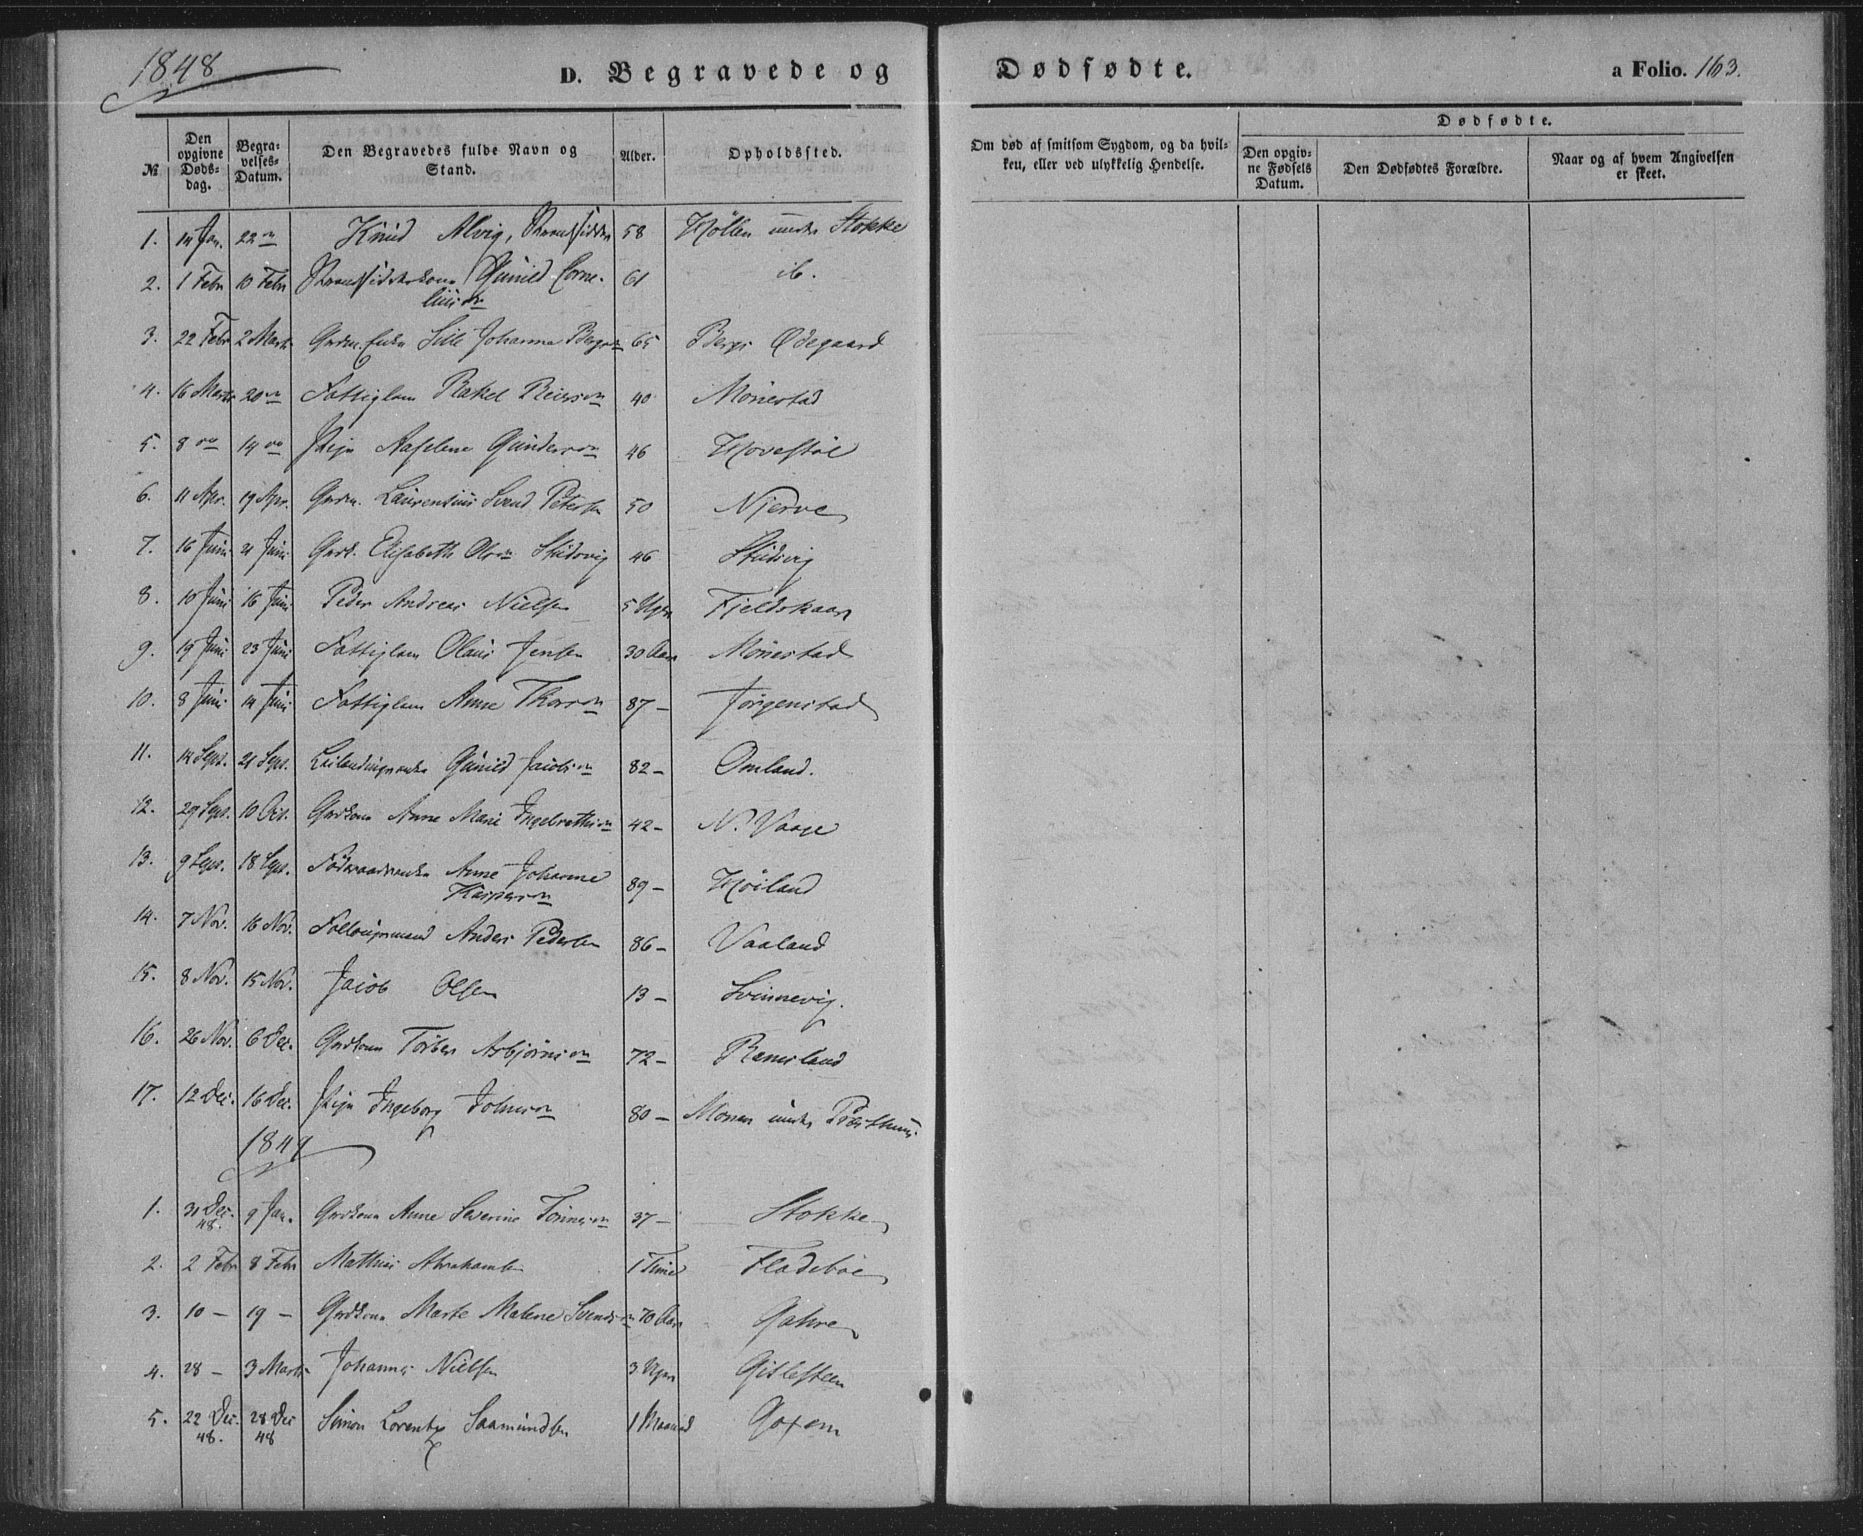 1848
D. Begravede og Dødfødte. a Folio. 163.
№
Den opgivne Døds-dag.
Begra-velses-Datum.
Den Begravedes fulde Navn og Stand.
Alder.
Opholdssted.
Om død af smitsom Sygdom, og da hvil-ken, eller ved ulykkelig Hendelse.
Dødfødte.
Den opgiv-ne Fødsels Datum.
Den Dødfødtes Forældre.
Naar og af hvem Angivelsen er skeet.
1. 14 Jan. 22 Knud Alvig, Strandsidder 58 Kjøllen under Stokke
2. 1 Febr 10 Febr Strandsidderkone Gunild Corne- 61 ib.
3. 22 Febr 2 Marts Grdm. Enke Sille Johanna 65 Bergs Ødegaard
4. 16 Marts 20 Fattiglem Rakel 40 Mønestad
5. 8 14 Pige Aaselene 46 Hovestøl
6. 11 Apr. 19 Apr. Grdm. Laurentius Svend Petersen 50 Njerve
7. 16 Juni 21 Juni Elisabeth Olsen Skudvig 46 Skudvig
8. 10 Juni 16 Juni Peder Andreas Nielsen 5 Uger Fjeldskaar
9. 19 Juni 23 Juni Fattiglem Olaus Jensen 30 Aar Mønestad
10. 8 Juni 14 Juni Fattiglem Anne 87 – Jørgenstad
11. 14 Sept. 21 Sept. Leilendingsenke Gunild Jacobs 82 – Omland.
12. 29 Sept. 10 Oct. Grdkone Anne Marie Ingebreths 42 – N. Vaage
13. 9 Sept. 18 Sept. Føderaadsenke Anne Johanne 89 – Høiland
Kaspers
14. 7 Nov. 16 Nov. Anders Pedersen 86 – Vaaland
15. 8 Nov. 15 Nov. Jacob Olsen 13 – Svinnevig.
16. 26 Nov. 6 Dec. Grdkone Torbor Asbjørns 72 – Remesland
17. 12 Dec. 16 Dec. Pige Ingeborg 80 – Monen under
1849
1. 31 Dec. 48. 9 Jan. Grdkone Anne Severine Tønnes 37 – Stokke
2. 2 Febr 8 Febr Matthias Abrahamsen 1 Time Fladeboe
3. 10 – 19 – Grdkone Marte Malene Svends 70 Aar Gahre
4. 28 – 3 Marts Johannes Nielsen 3 Uger Gislesteen
5. 22 Dec. 48. 28 Dec 48 Simon Lorentz Saamundsen 1 Maaned